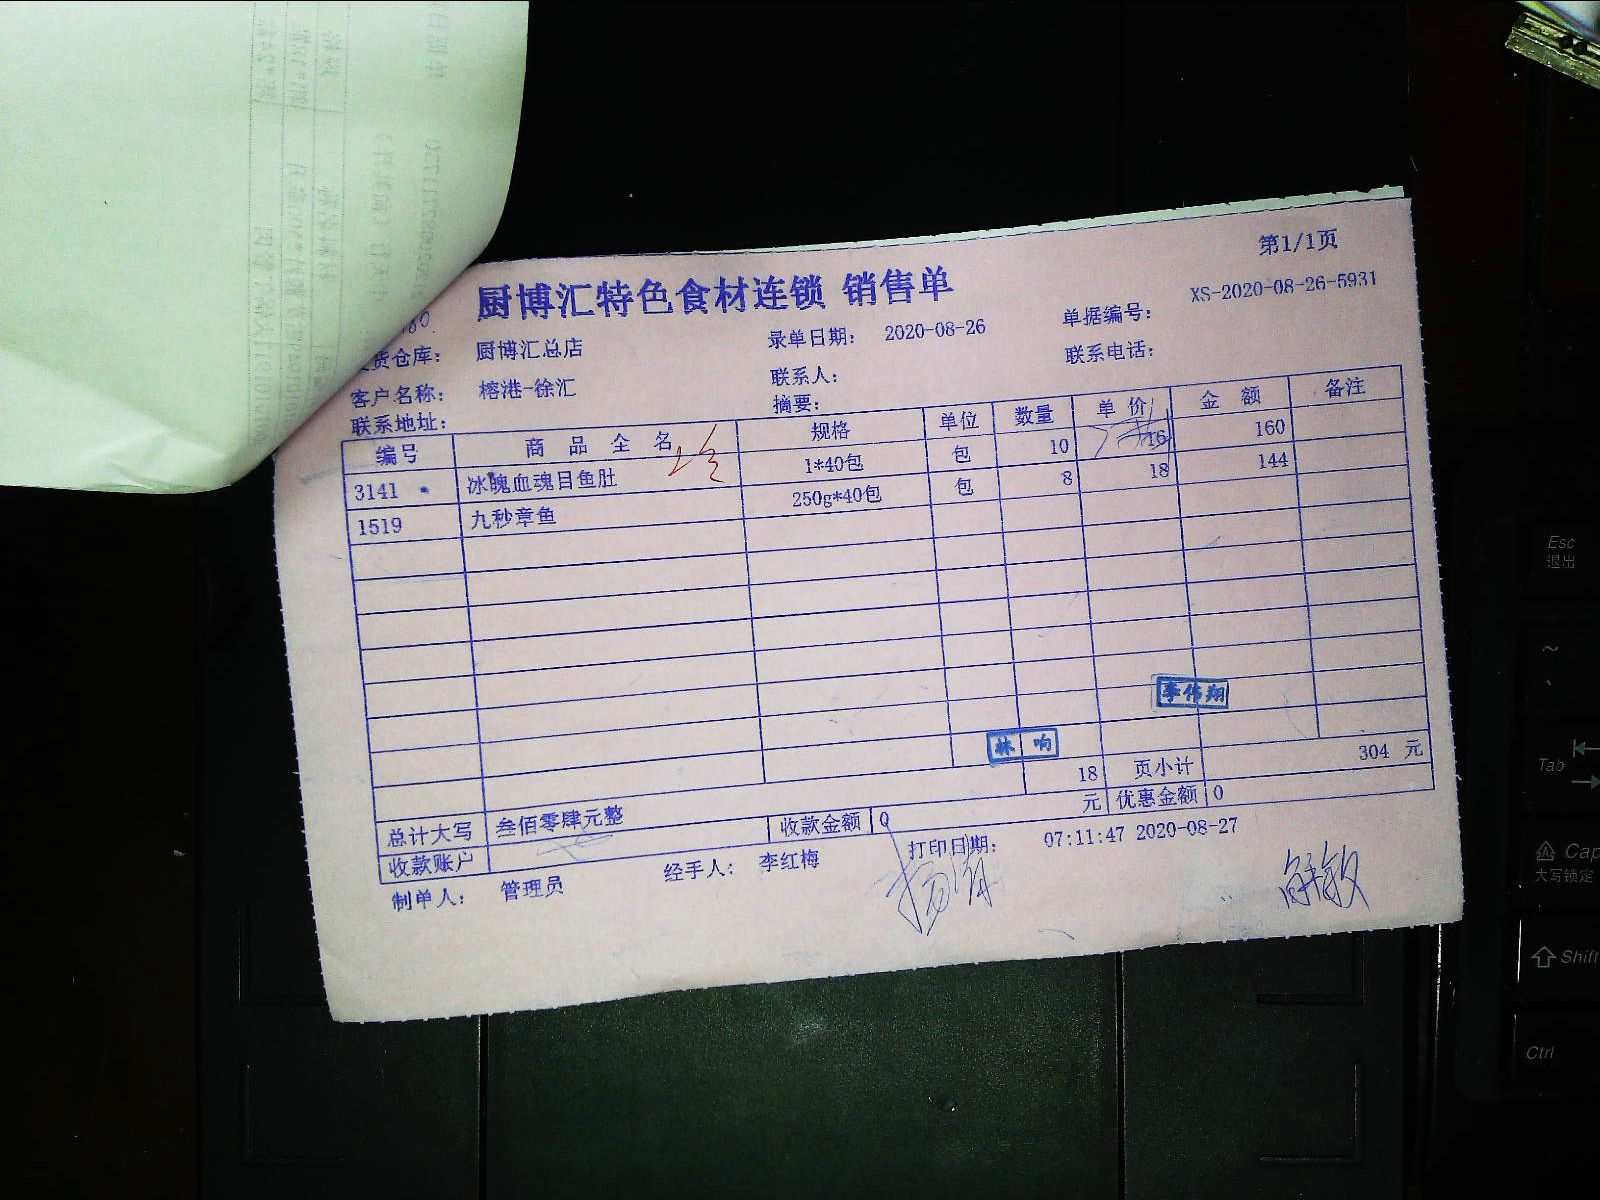 第1/1页
厨博汇特色食材连锁 销售单
XS-2020-08-26-5931
货仓库： 厨博汇总店 录单日期： 2020-08-26 单据编号：
客户名称： 榕港-徐汇 联系人： 联系电话：
联系地址： 摘要：
编号 商品全名 规格 单位 数量 单价 金额 备注
3141 冰魄血魂目鱼肚 1*40包 包 10 16 160
1519 九秒章鱼 250g*40包 包 8 18 144
李伟翔
林响
18 页小计 304 元
总计大写 叁佰零肆元整 元 优惠金额 0
收款账户 收款金额 0
制单人： 管理员 经手人： 李红梅 打印日期： 07:11:47 2020-08-27
Esc
退出
Tab
Cap
大写锁定
Shift
Ctrl